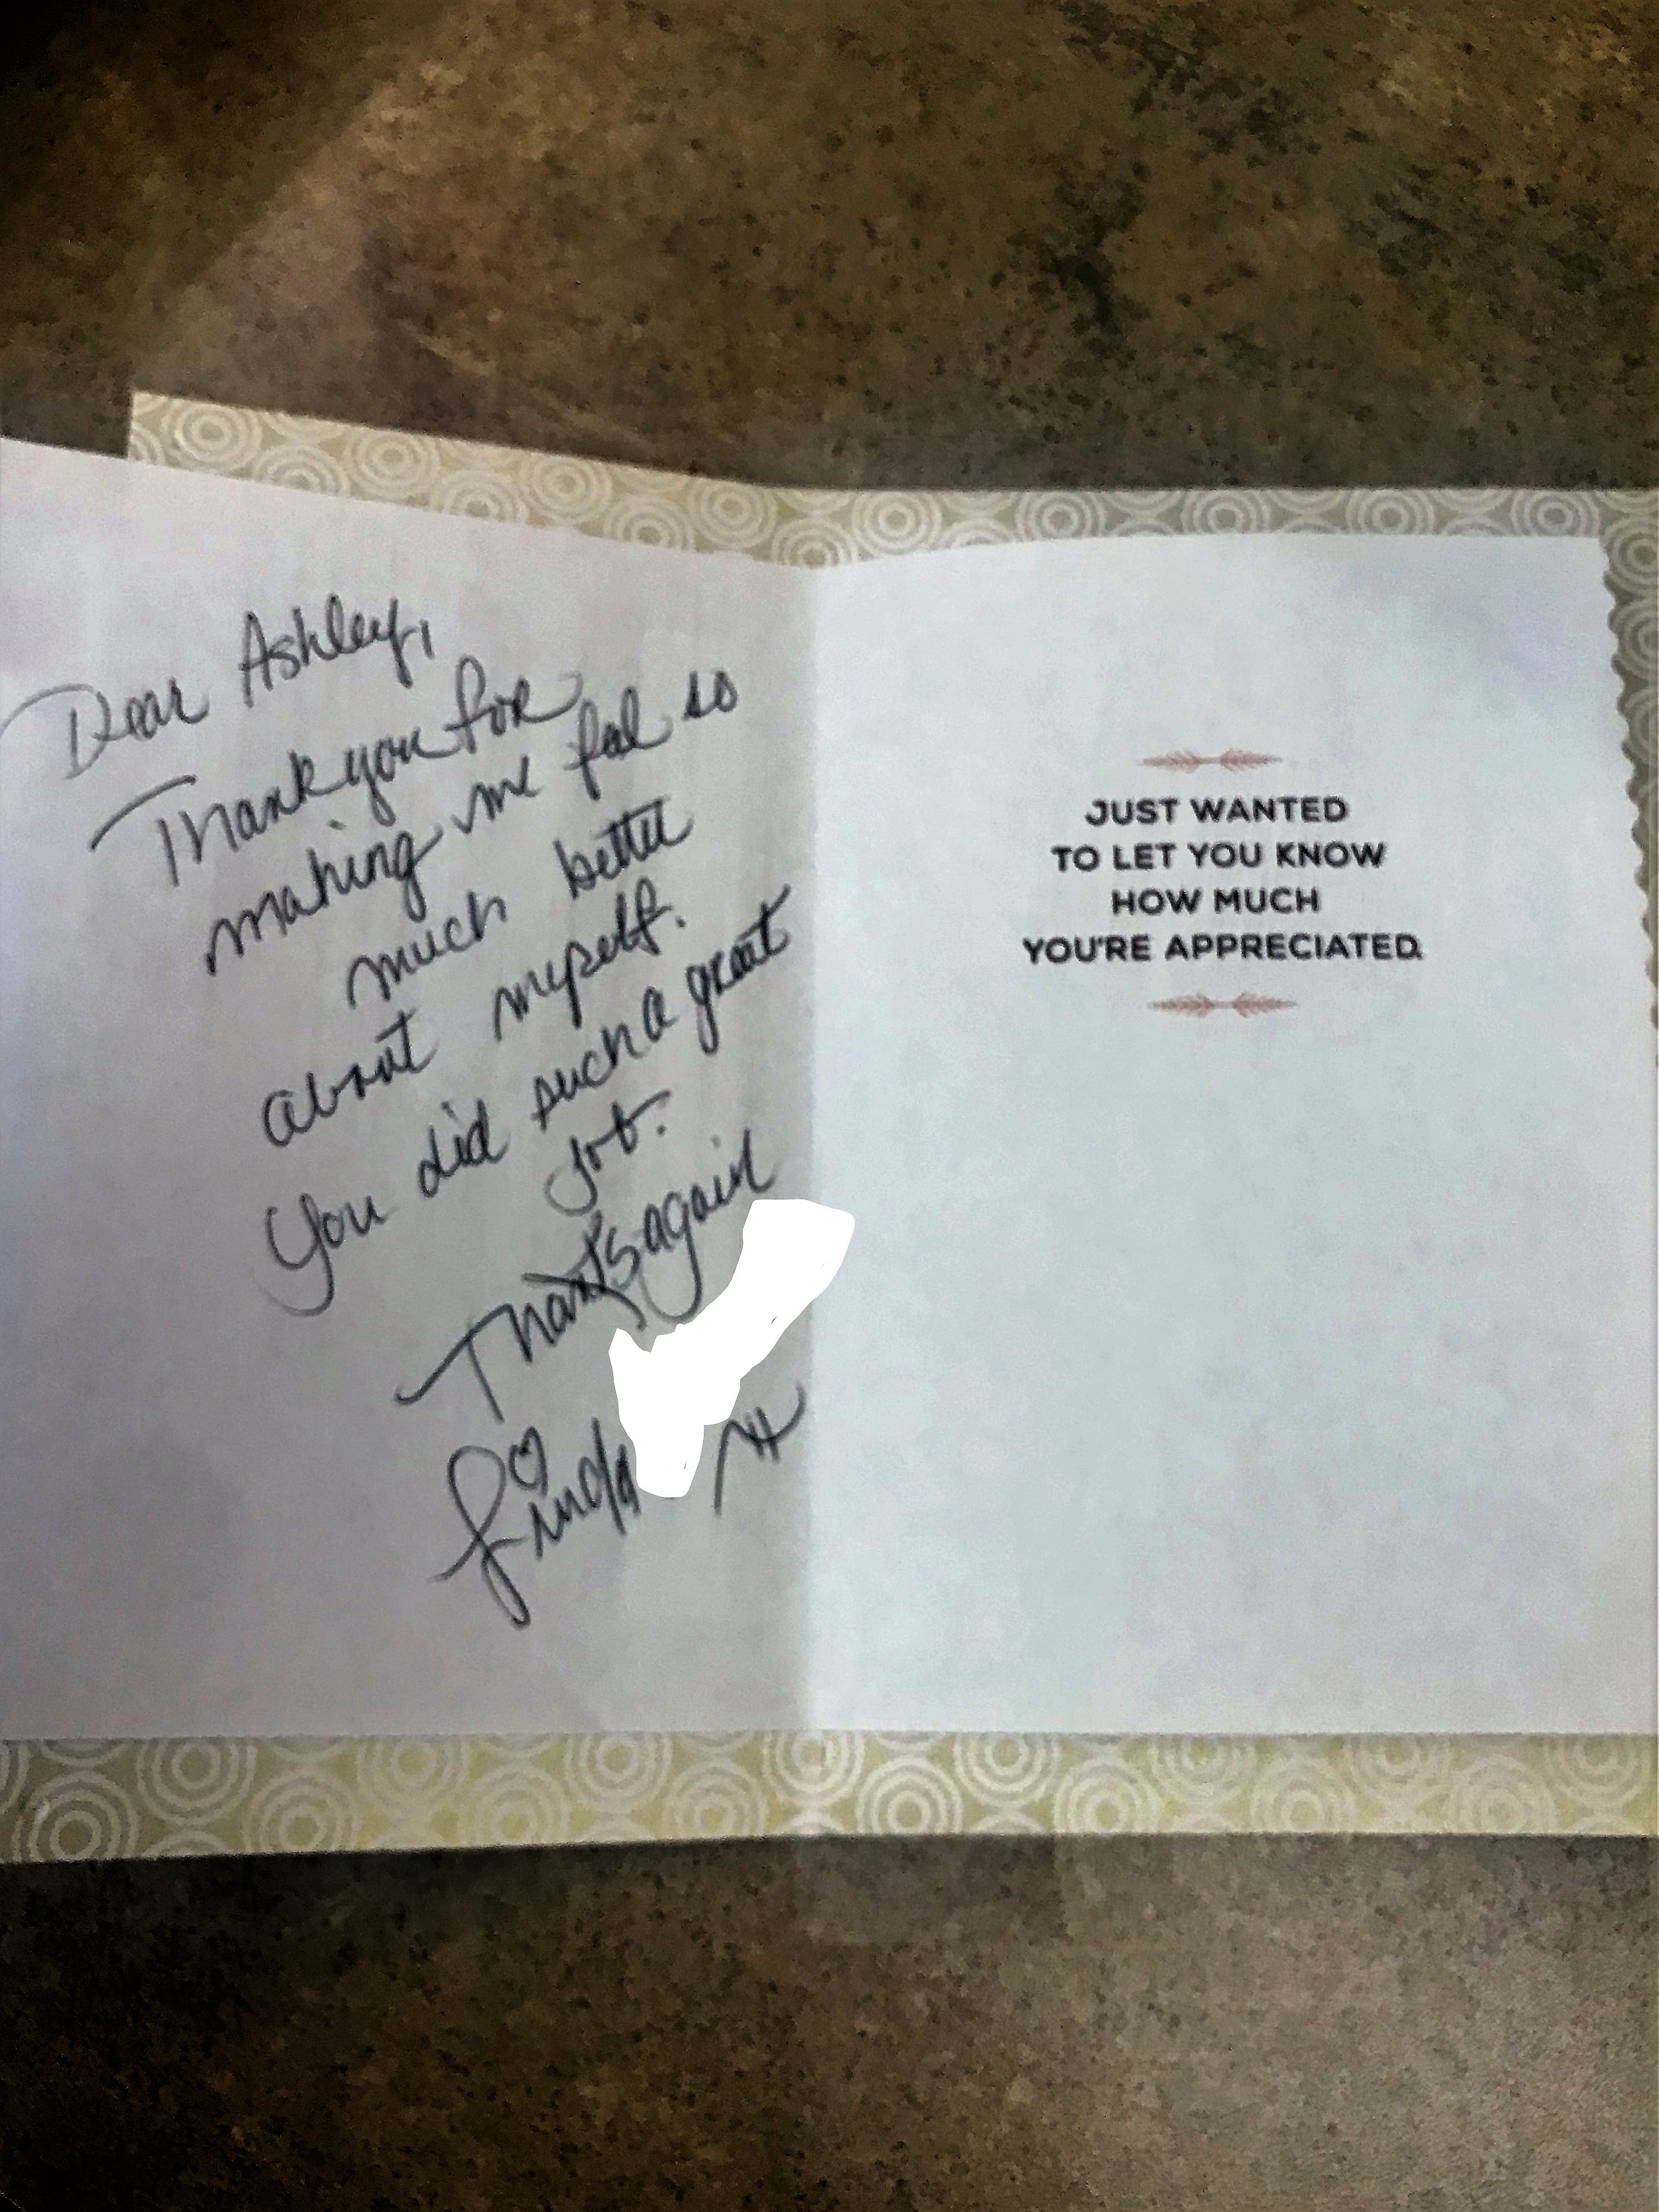 Dear Ashley,
Thank you for
making me feel so
much better
about myself.
You did such a great
job.
Thanks again
Linda
JUST WANTED
TO LET YOU KNOW
HOW MUCH
YOU'RE APPRECIATED.